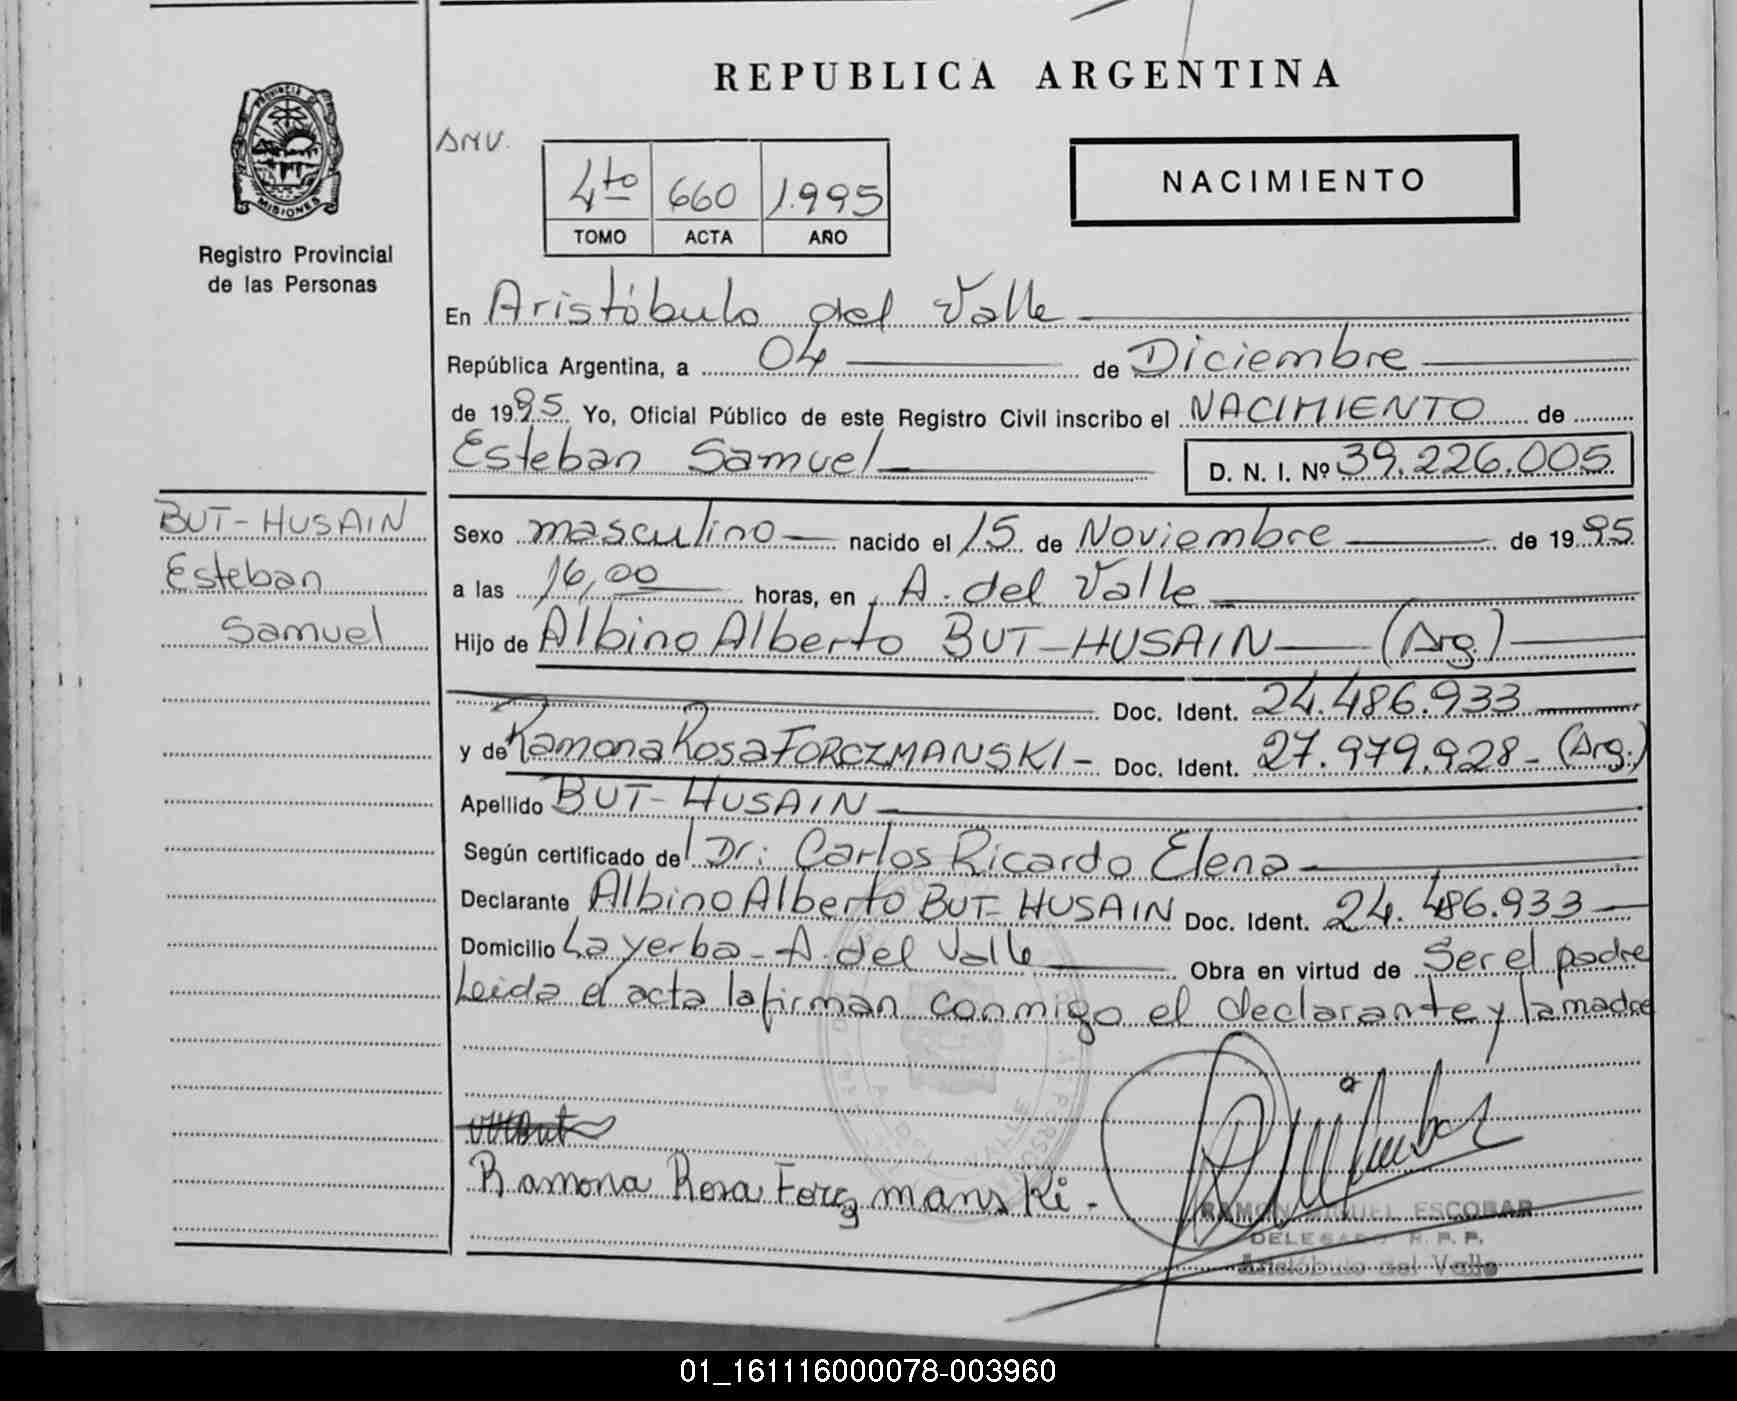 REPUBLICA ARGENTINA
PROVINCIA DE
MISIONES
Registro Provincial
de las Personas
4to 660 1.995
TOMO ACTA AÑO
NACIMIENTO
En Aristóbulo del Valle
República Argentina, a 04 de Diciembre
de 1995 Yo, Oficial Público de este Registro Civil inscribo el NACIMIENTO de
Esteban Samuel D. N. I. Nº 39.226.005
BUT-HUSAIN
Esteban
Samuel
Sexo masculino nacido el 15 de Noviembre de 1995
a las 16,00 horas, en A. del Valle
Hijo de Albino Alberto BUT-HUSAIN (Arg.)
Doc. Ident. 24.486.933
y de Ramona Rosa FORCZMANSKI - Doc. Ident. 27.979.928 - (Arg.)
Apellido BUT-HUSAIN
Según certificado del Dr: Carlos Ricardo Elena
Declarante Albino Alberto BUT-HUSAIN Doc. Ident. 24.486.933
Domicilio La yerba - A. del Valle Obra en virtud de Ser el padre
Leida el acta la firman conmigo el declarante y la madre
Ramona Rosa Forczmanski -
RAMON MIGUEL ESCOBAR
DELEGADO R. P. P.
Aristóbulo del Valle
01_161116000078-003960